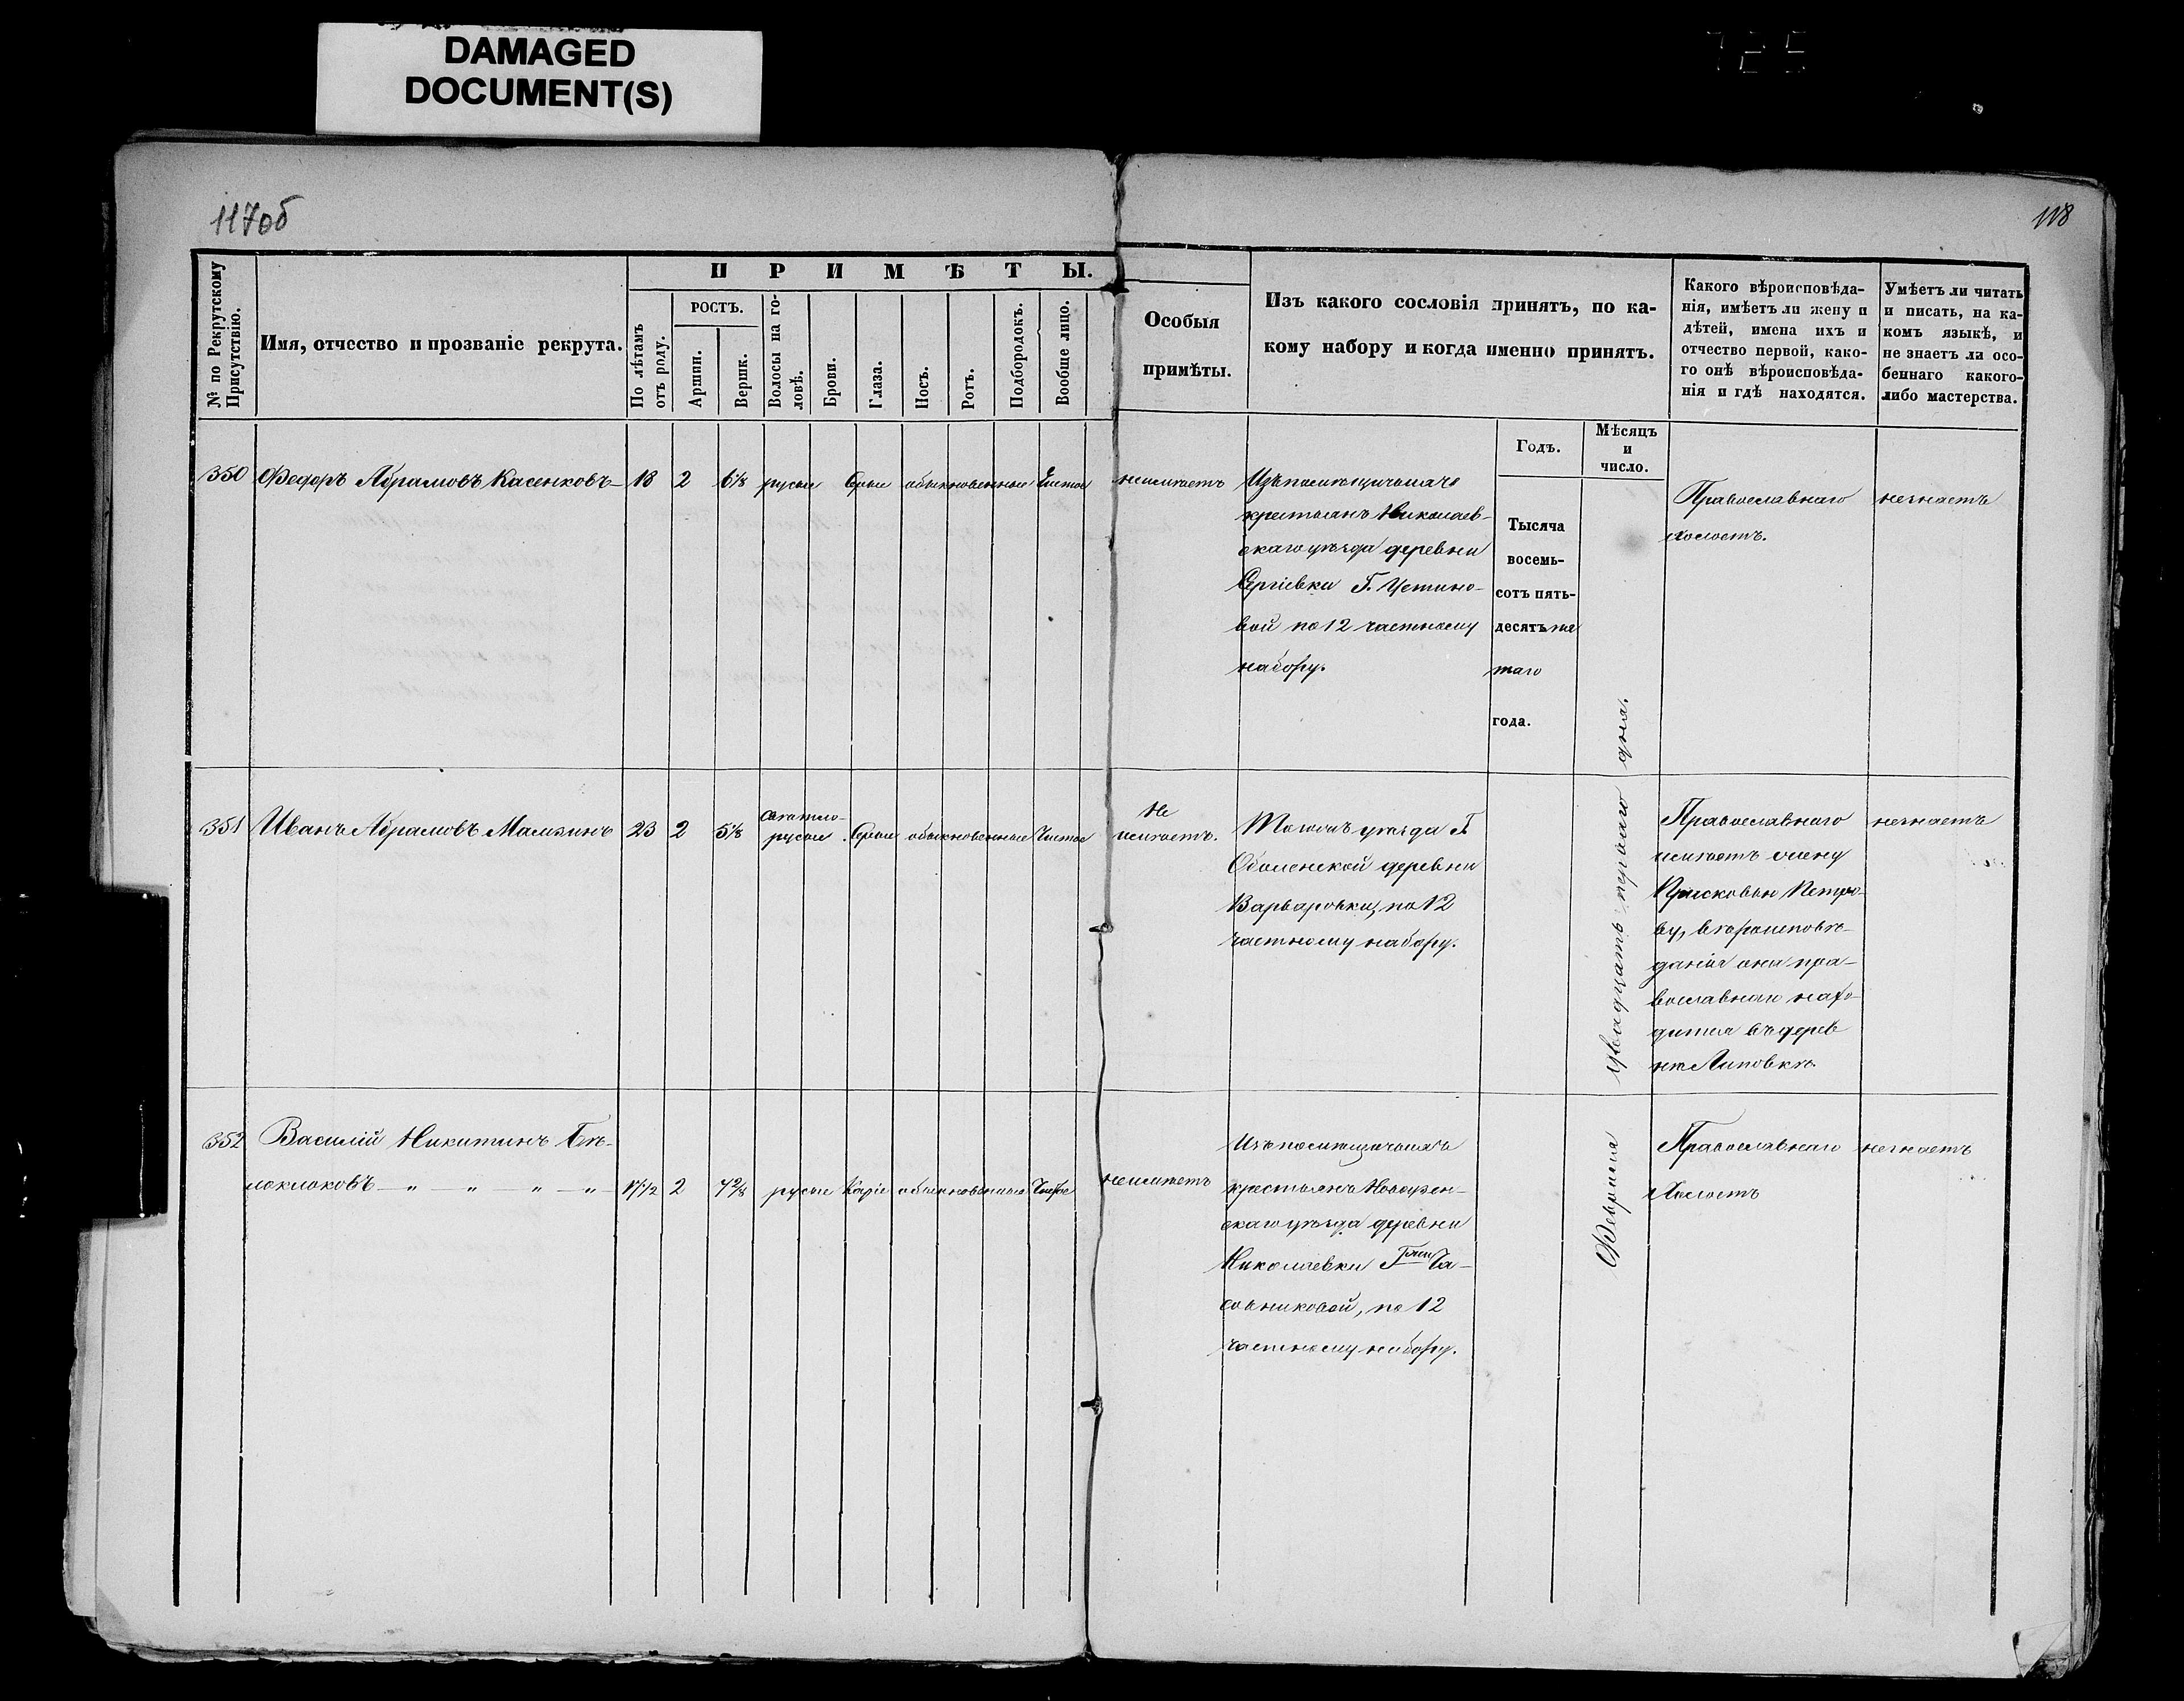 DAMAGED
DOCUMENT(S)
117об
118
№ по Рекрутскому
Присутствію.
Имя, отчество и прозваніе рекрута.
ПРИМѢТЫ.
По лѣтамъ
отъ роду.
РОСТЪ.
Аршин.
Вершк.
Волосы на го-
ловѣ.
Брови.
Глаза.
Носъ.
Ротъ.
Подбородокъ.
Вообще лицо.
Особыя
примѣты.
Изъ какого сословія принятъ, по ка-
кому набору и когда именно принятъ.
Годъ.
Мѣсяцъ
и
число.
Какого вѣроисповѣда-
нія, имѣетъ ли жену и
дѣтей, имена ихъ и
отчество первой, како-
го онѣ вѣроисповѣда-
нія и гдѣ находятся.
Умѣетъ ли читать
и писать, на ка-
комъ языкѣ, и
не знаетъ ли осо-
беннаго какого-
либо мастерства.
350 Федоръ Абрамовъ Касенковъ 18 2 6 1/8 русые Серые обыкновенные Чистое
неимѣетъ
Изъ помѣщичьихъ
крестьянъ Николаев-
скаго уѣзда деревни
Сергіевки Г. Устино-
вой по 12 частному
набору.
Тысяча
восемь-
сотъ пять-
десятъ пя
таго
года.
Февраля двадцать перваго дня.
Православнаго
холостъ.
незнаетъ
351 Иванъ Абрамовъ Мамзинъ 23 2 5 1/8
свѣтло-
русые Серые обыкновенные Чистое
Не
имѣетъ.
Тогожъ уѣзда Г.
Оболенской деревни
Варваровки, по 12
частному набору.
Православнаго
имѣетъ жену
Прасковью Петро-
ву, вѣроисповѣ-
данія она пра-
вославнаго нахо-
дится въ дерев
не Липовкѣ.
незнаетъ
352 Василій Никитинъ Бѣ-
локлоковъ — " — " — " — " — 17 1/2 2 4 2/8 русые Каріе обыкновенные Чистое
неимѣетъ
Изъ помѣщичьихъ
крестьянъ Новоузен-
скаго уѣзда деревни
Николаевки Гжи Ча-
совниковой, по 12
частному набору.
Православнаго
Холостъ
незнаетъ